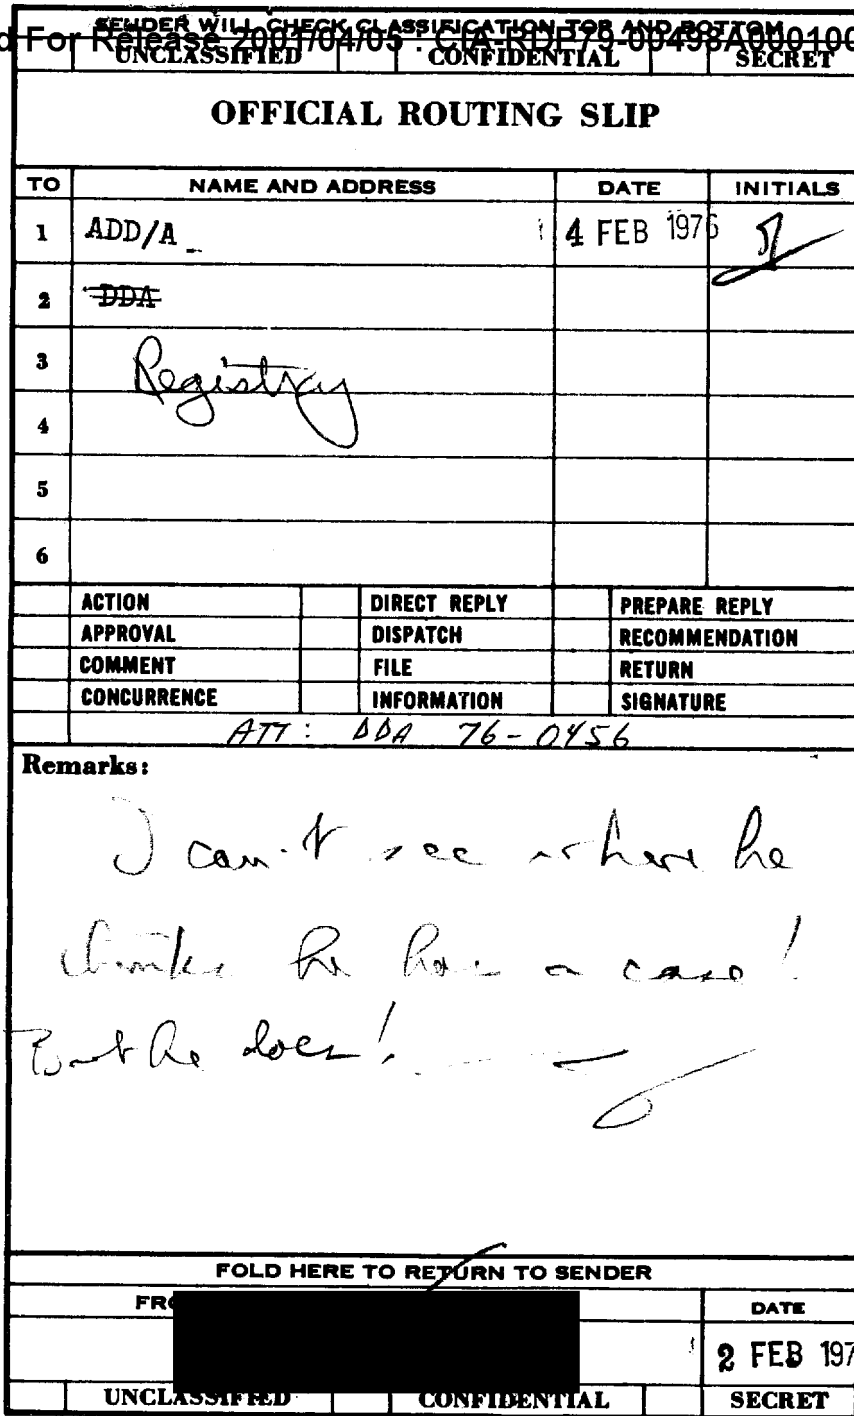 SENDER WILL CHECK CLASSIFICATION TOP AND BOTTOM
d For Release 2001/04/05 : CIA-RDP79-00498A000100
UNCLASSIFIED CONFIDENTIAL SECRET
OFFICIAL ROUTING SLIP
TO NAME AND ADDRESS DATE INITIALS
1 ADD/A 4 FEB 1976
2 DDA
3 Registry
4
5
6
ACTION DIRECT REPLY PREPARE REPLY
APPROVAL DISPATCH RECOMMENDATION
COMMENT FILE RETURN
CONCURRENCE INFORMATION SIGNATURE
ATT: DDA 76-0456
Remarks:
I can't see where he
thinks he has a case!
But he does!
FOLD HERE TO RETURN TO SENDER
FRO DATE
2 FEB 197
UNCLASSIFIED CONFIDENTIAL SECRET